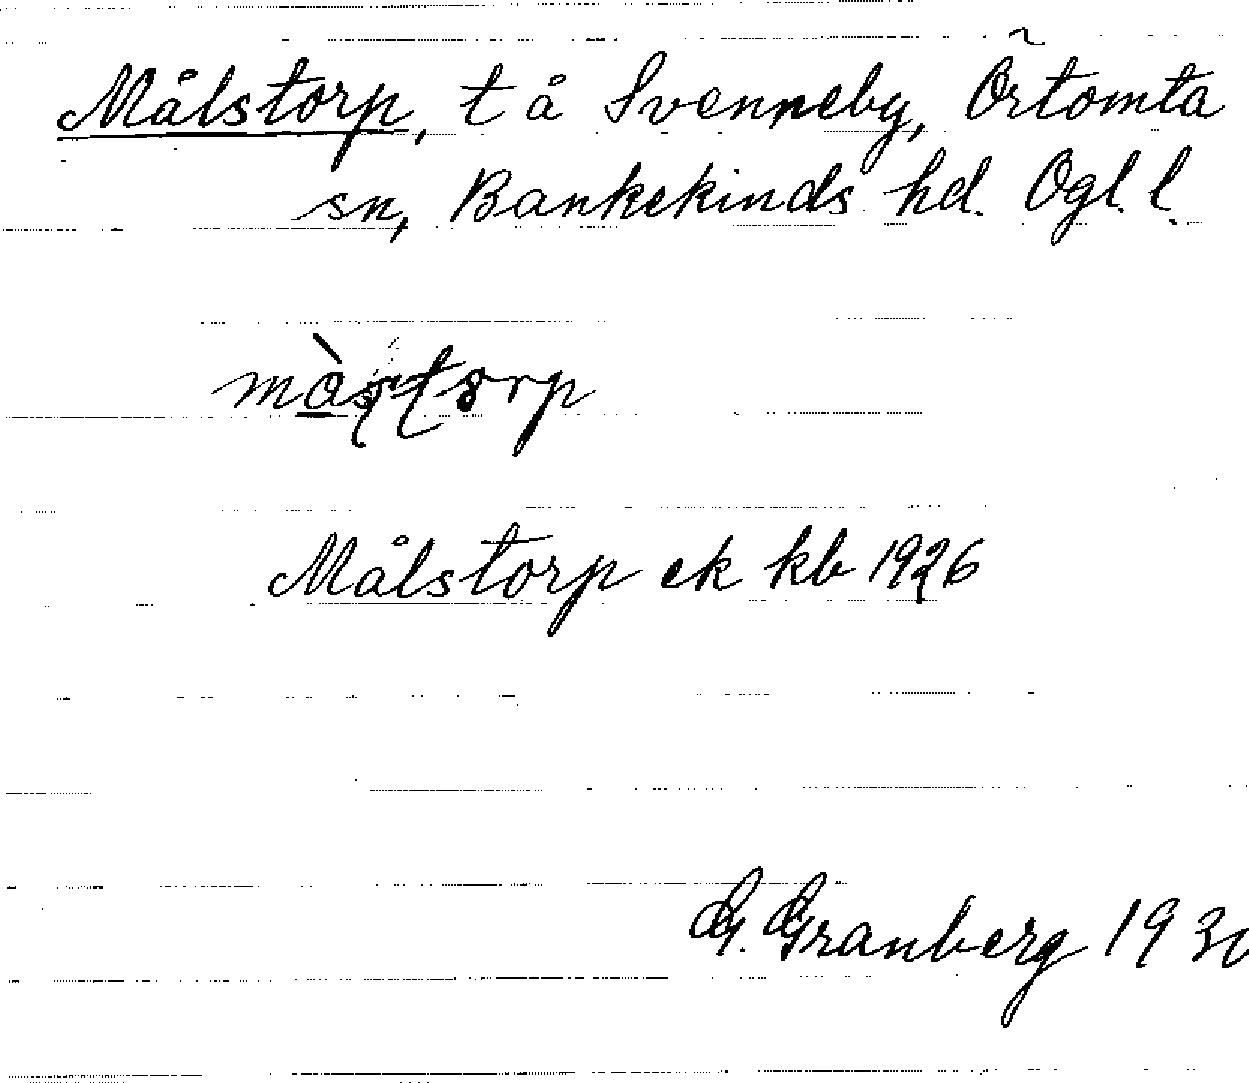 Målstorp, t å Svenneby, Örtomta
sn, Bankekinds hd. Ögl. l.
Målstorp ek kb 1926
G. Granberg 1930